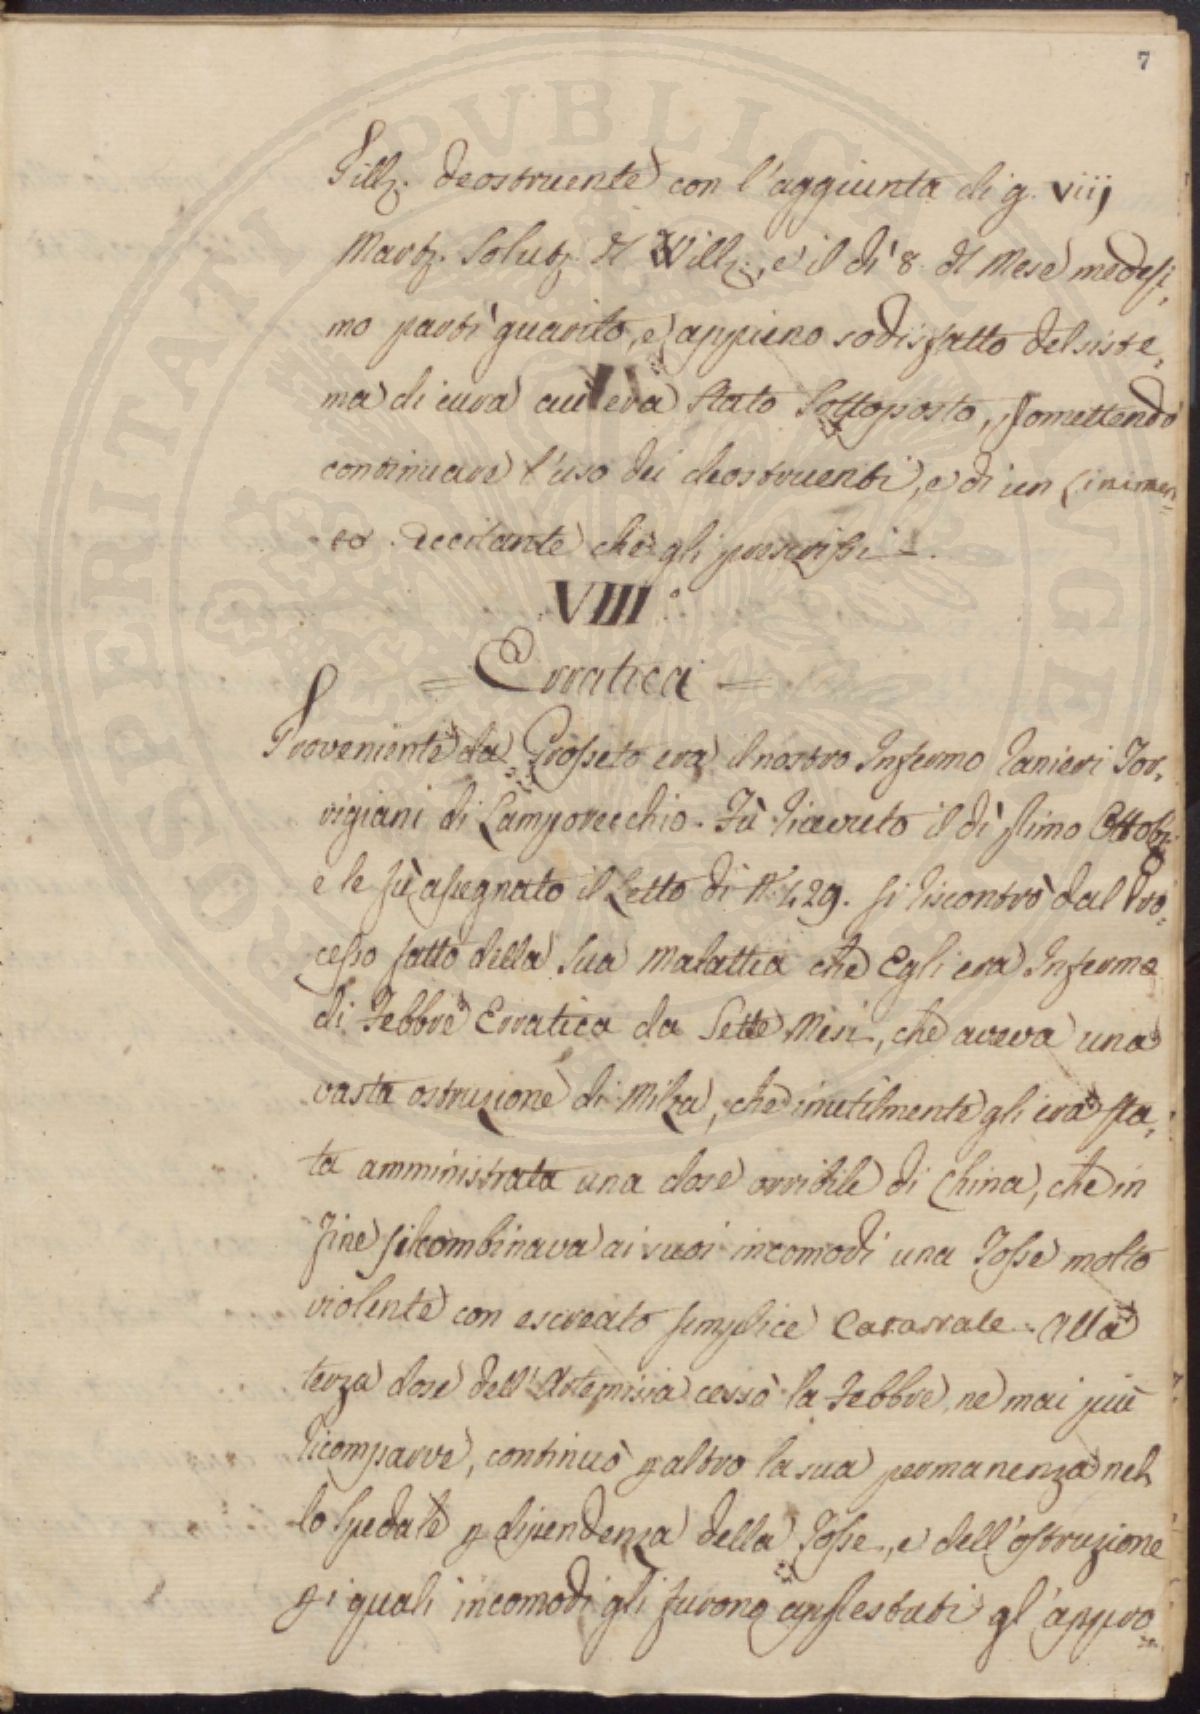 7
Pill. deostruente con l'aggiunta di g. viij
Mart. Solub. di Will., e il dì 8. di Mese medesi,
mo partì guarito, e appieno sodisfatto del siste,
ma di cura cui era stato sottoposto, promettendo
continuare l'uso dei deostruenti, e di un Linimen,
to eccitante che gli prescrissi.
VIII.°
= Erratica =
Proveniente da Grosseto era il nostro Infermo Ranieri Tor,
rigiani di Lamporecchio. Fù ricevuto il dì primo Ottobr.
e le fù assegnato il Letto di N. 429. si riscontrò dal Pro,
cesso fatto della sua malattia che Egli era Infermo
di Febbre Erratica da Sette Mesi, che aveva una
vasta ostruzione di Milza, che inutilmente gli era sta,
ta amministrata una dose orribile di China, che in
fine si combinava ai suoi incomodi una Tosse molto
violente con escreato semplice Catarrale. Alla
terza dose dell'Artemisia cessò la Febbre, ne mai più
ricomparve, continuò p altro la sua permanenza nel,
lo Spedale p dipendenza della Tosse, e dell'ostruzione
p i quali incomodi gli furono apprestati gl'appro,